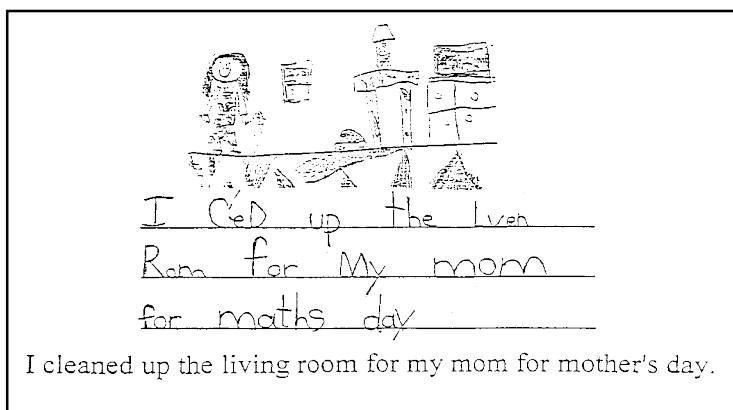 I C'eD up the lven
Rom for My mom
for maths day
I cleaned up the living room for my mom for mother's day.